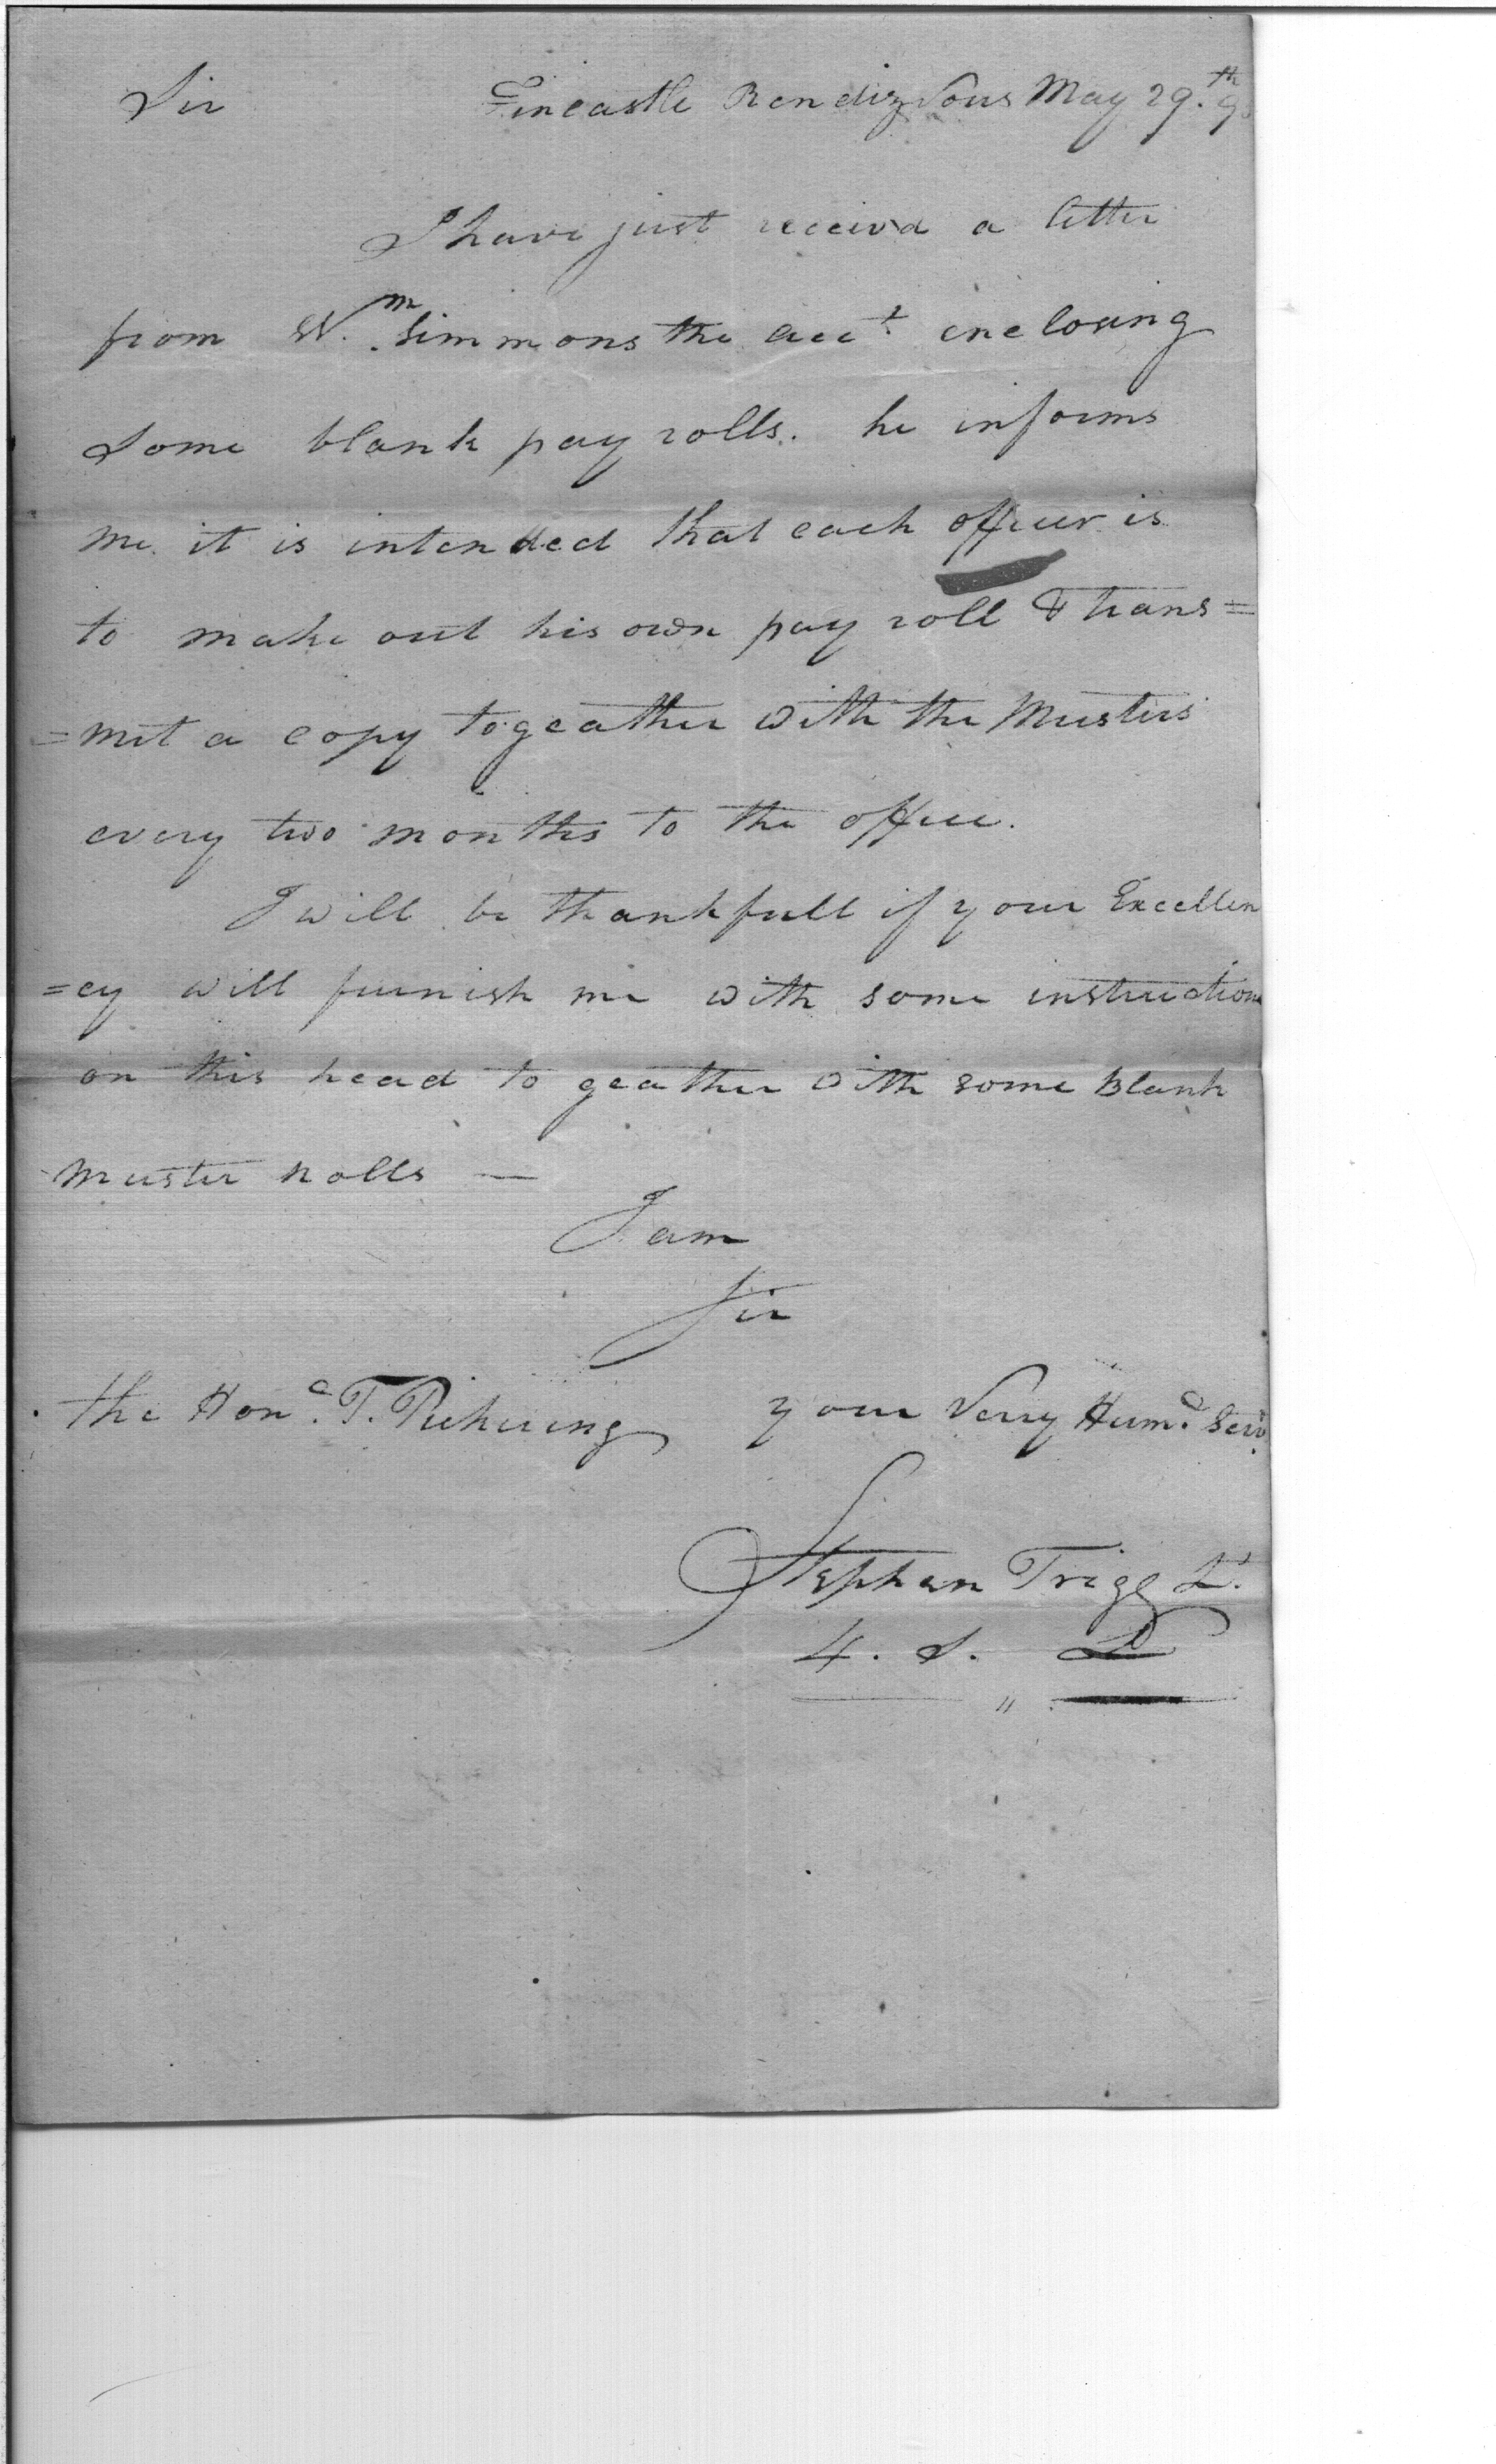 Sir Fincastle Rendizvous May 29.th 9
I have just receivd a letter
from Wm. Simmons the acct. enclosing
some blank pay rolls. he informs
me it is intended that each officer is
to make out his own pay roll & trans=
=mit a copy togeather with the Musters
every two months to the office.
I will be thankfull if your Excellen
=cy will furnish me with some instructions
on this head to geather with some blank
muster Rolls —
I am
Sir
the Hone. T. Pickering your Very Hume. Serv.
Stephen Trigg Lt.
4. S. L